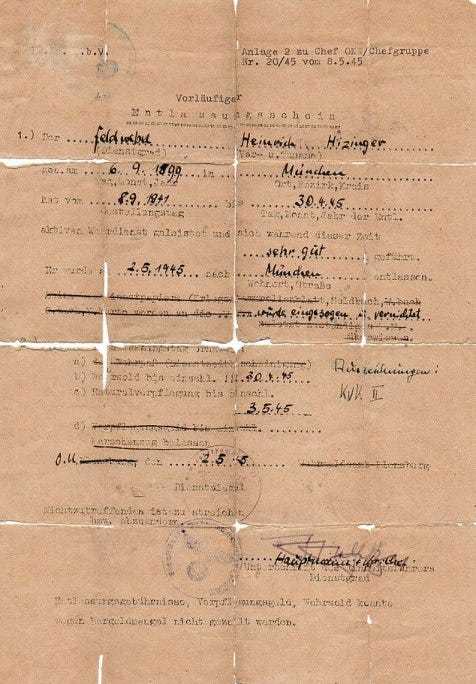 b.V.
Anlage 2 zu Chef OKW/Chefgruppe
Nr. 20/45 vom 8.5.45
Vorläufiger
Entlassungsschein
1.) Der Feldwebel Heinrich Hizinger
(Dienstgrad) (Vor- u. Zuname)
geb.am 6. 9. 1899 in München
Tag,Monat,Jahr Ort,Bezirk,Kreis
hat vom 8.9.1941 bis 30.4.45
Gestellungstag Tag,Monat,Jahr der Entl.
aktiven Wehrdienst geleistet und sich während dieser Zeit
sehr gut geführt.
Er wurde am 2.5.1945 nach München entlassen.
Wohnort,Straße
Soldbuch,
werden an das wurde eingezogen u. vernichtet
a)
Auszeichnungen:
b) Wehrsold bis einschl. 30.4.45
KVK II
c) Naturalverpflegung bis einschl.
3.5.45
d) Verpflegungsgeld bis
Marschanzug belassen
O.U. den 2.5.45
Dienstsiegel
Nichtzutreffendes ist zu streichen
bzw. abzuändern.
Hauptmann
Dienstgrad
Entlassungsgebührnisse, Verpflegungsgeld, Wehrsold konnte
wegen Bargeldmangel nicht gezahlt werden.